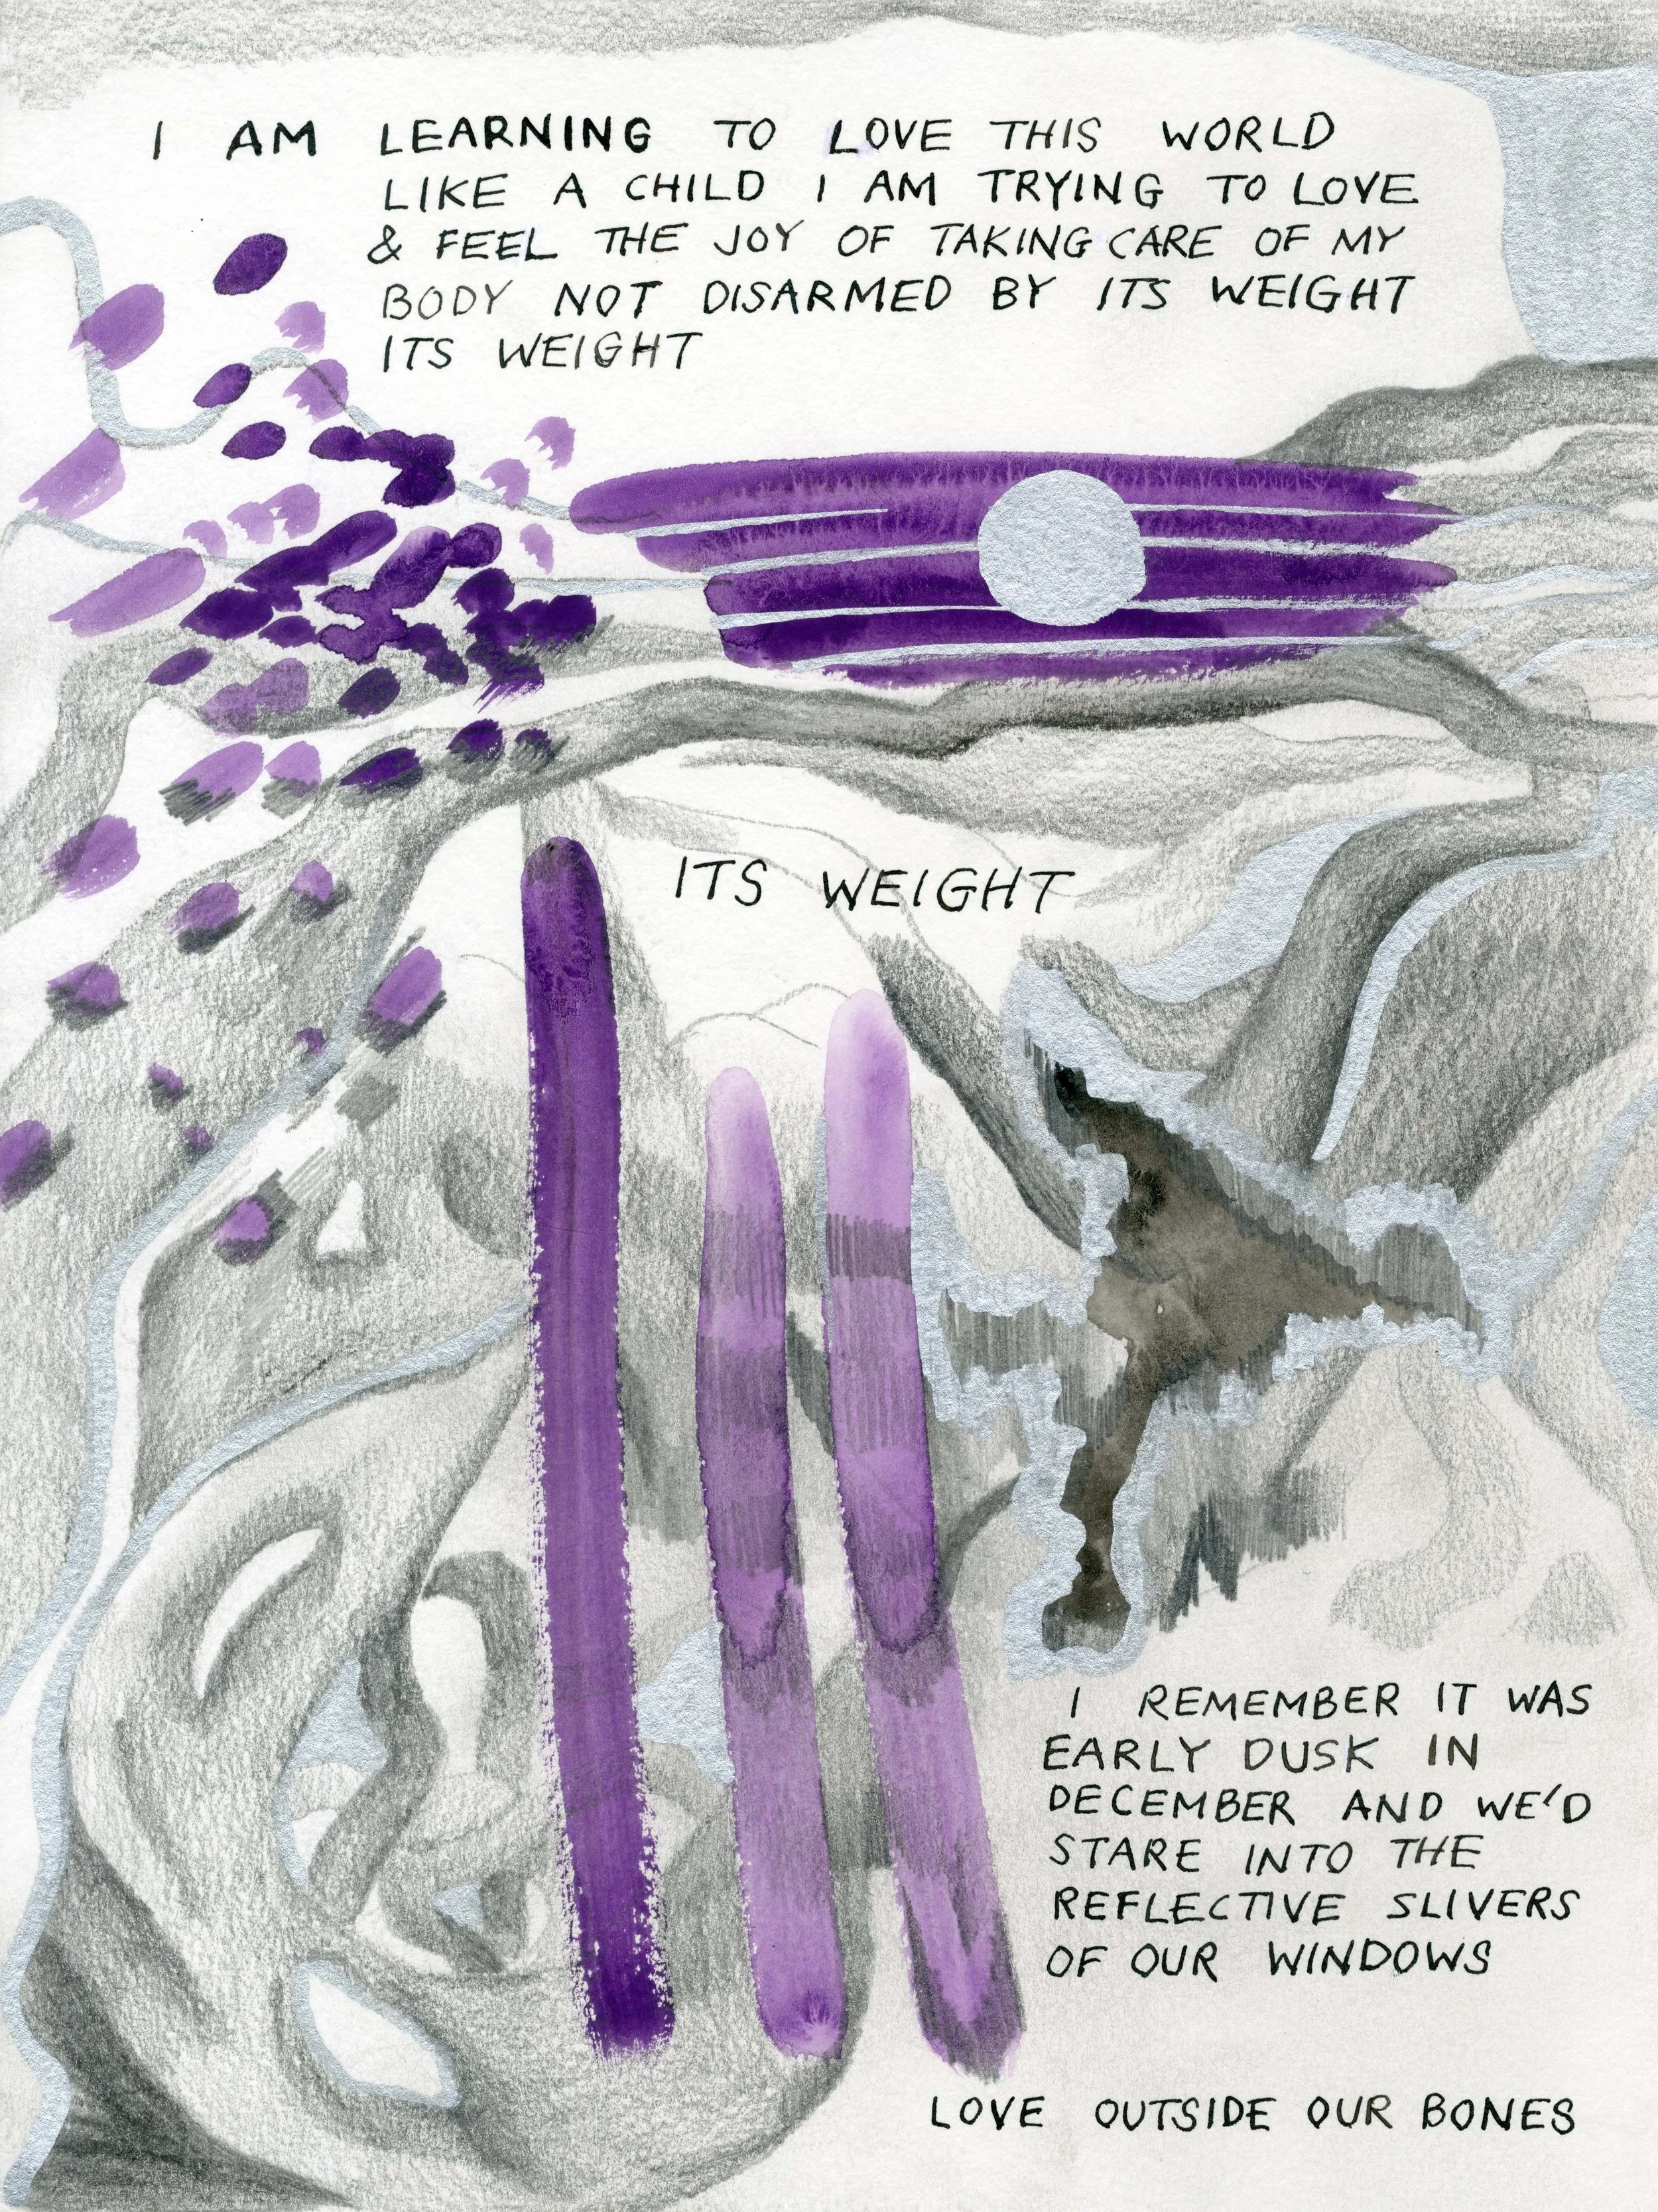 I AM LEARNING TO LOVE THIS WORLD
LIKE A CHILD I AM TRYING TO LOVE
& FEEL THE JOY OF TAKING CARE OF MY
BODY NOT DISARMED BY ITS WEIGHT
ITS WEIGHT
ITS WEIGHT
I REMEMBER IT WAS
EARLY DUSK IN
DECEMBER AND WE'D
STARE INTO THE
REFLECTIVE SLIVERS
OF OUR WINDOWS
LOVE OUTSIDE OUR BONES